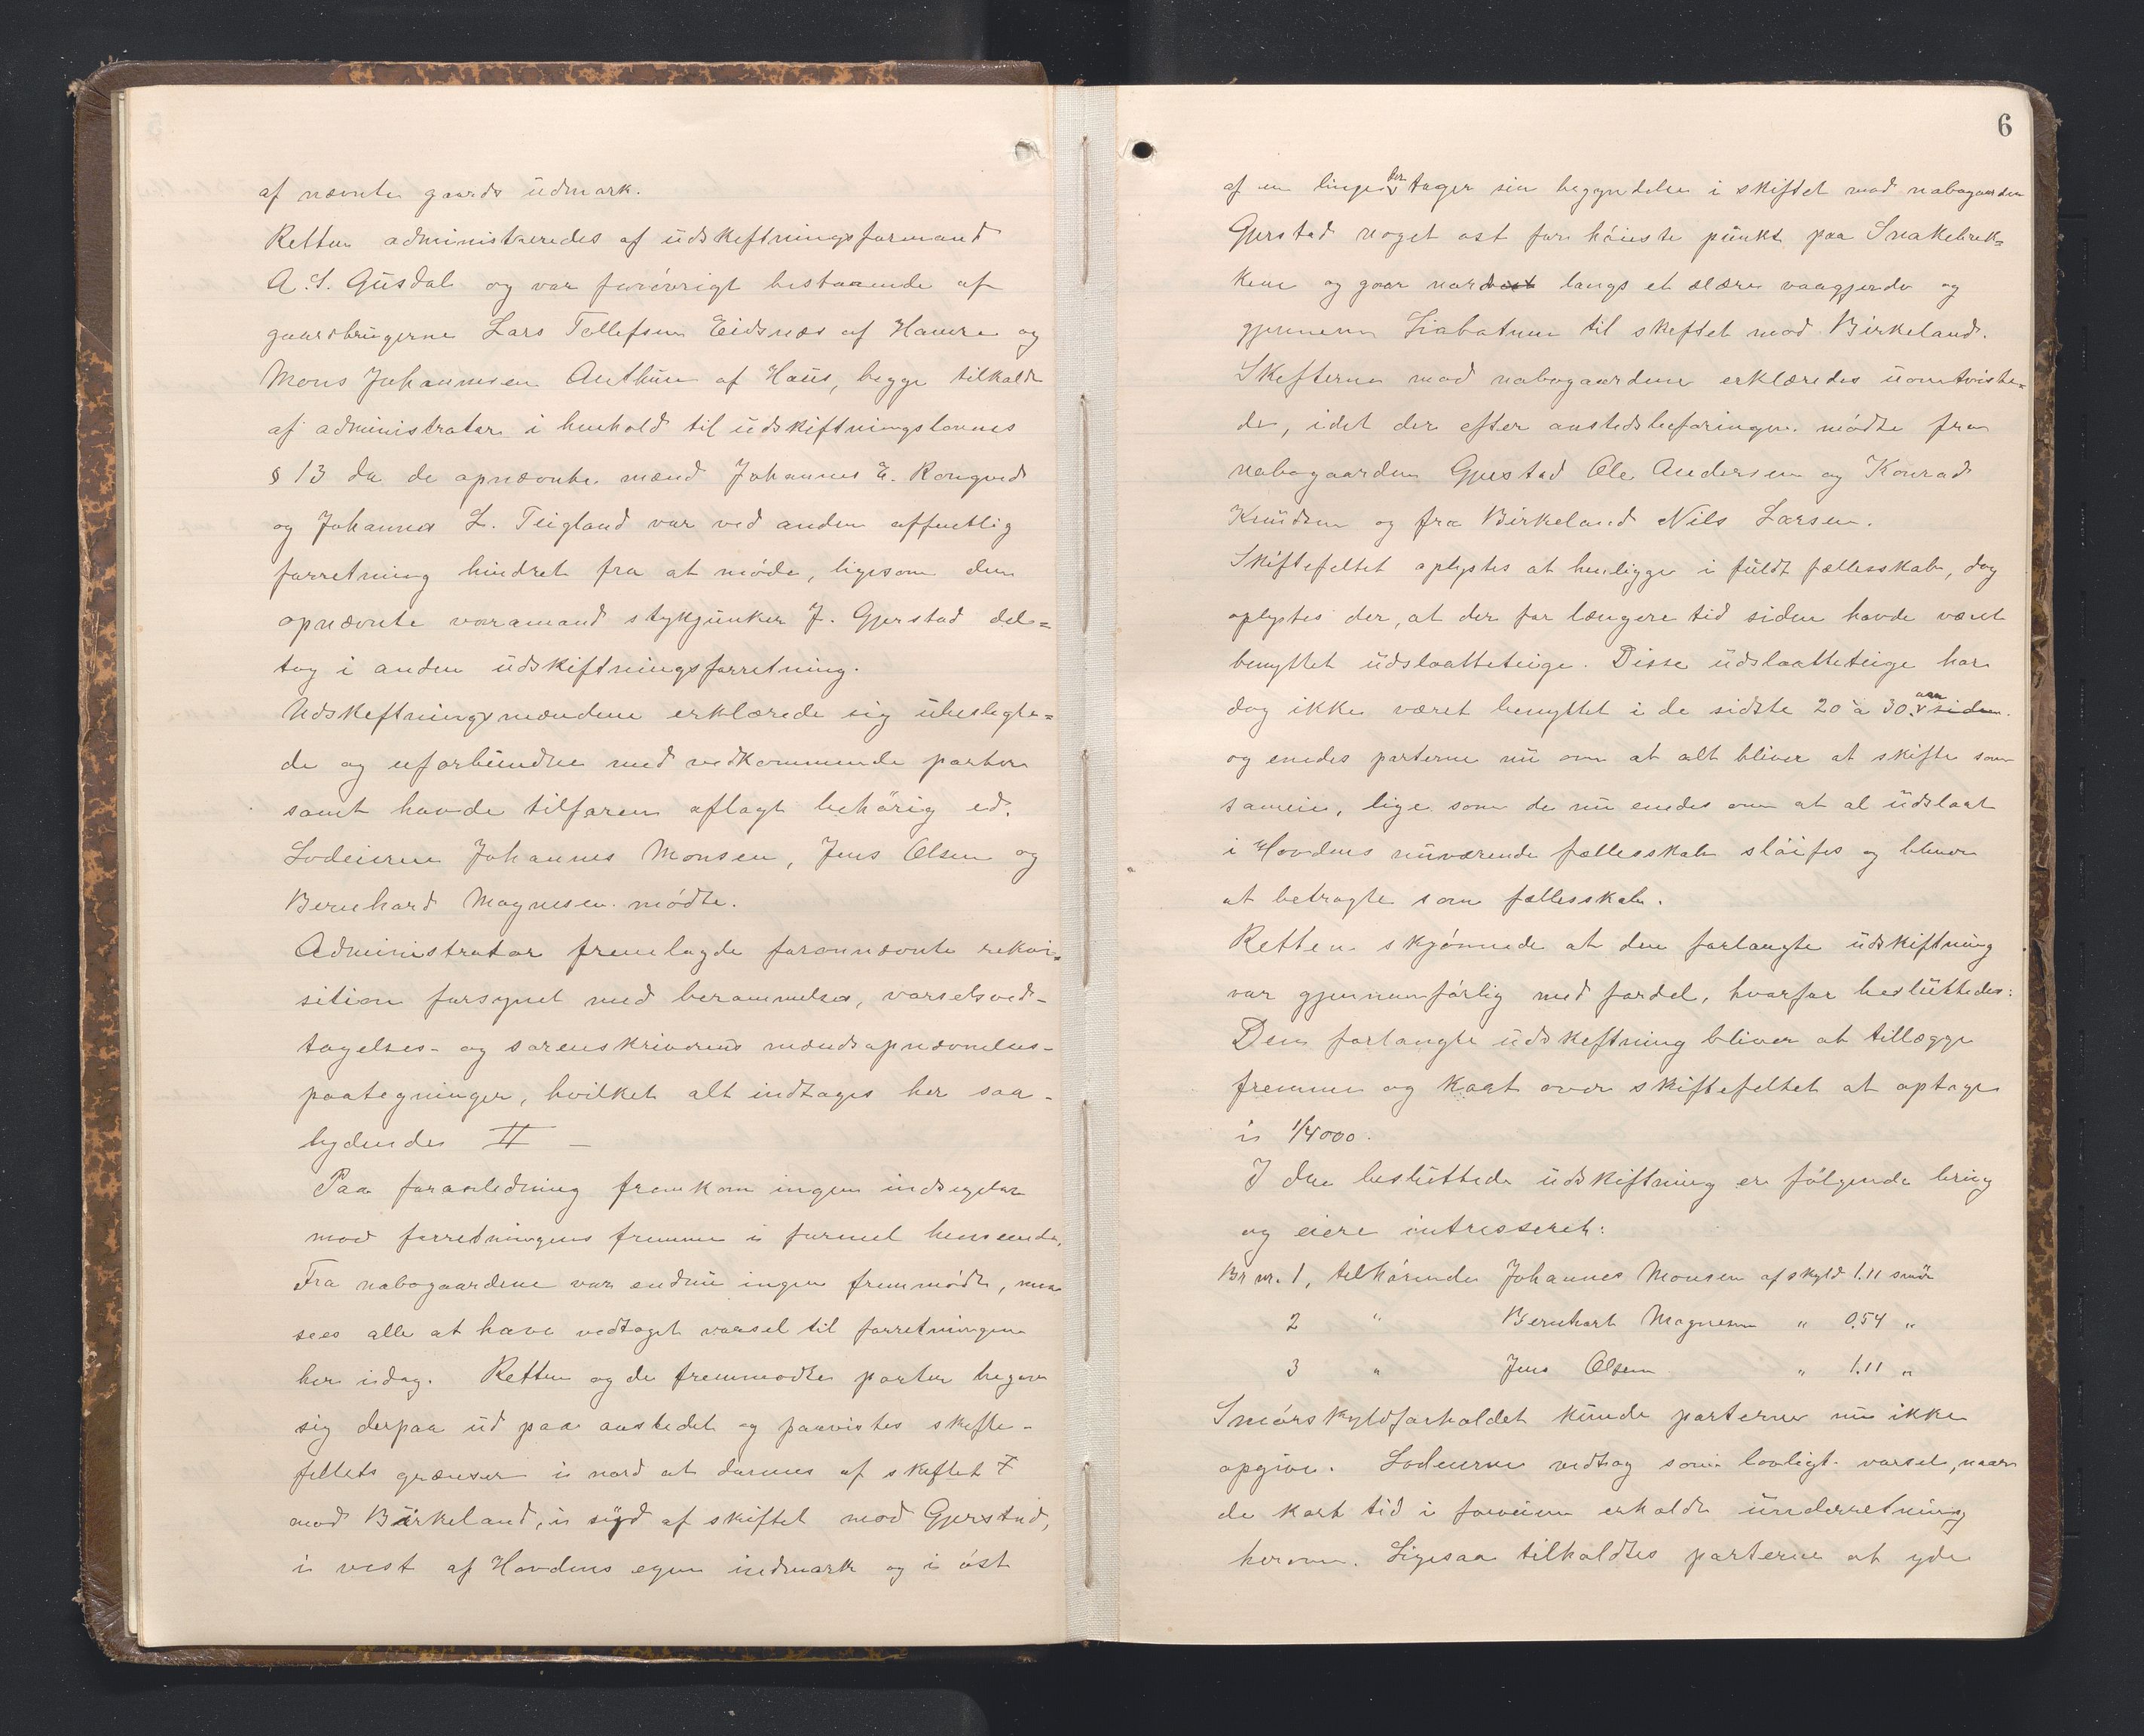 af nævnte gaards udmark.
Retten administreredes af udskiftningsformand
A. S. Gusdal og var forøvrigt bestaaende af
gaardbrugerne Lars Tollefsen Eidsnæs af Hamre og
Mons Johannesen Arthun af Haus, begge tilkaldt
af administrator i henhold til udskiftningslovens
§ 13 da de opnævnte mænd Johannes E. Rongved
og Johannes L. Teigland var ved anden offentlig
forretning hindret fra at møde, ligesom den
opnævnte varamand stykjunker J. Gjerstad del=
tog i anden udskiftningsforretning.
Udskiftningsmændene erklærede sig ubeslægte=
de og uforbundne med vedkommende parter
samt havde tilforen aflagt behörig ed.
Lodeierne Johannes Monsen, Jens Olsen og
Bernhard Magnesen mødte.
Administrator fremlagde forannævnte rekvi=
sition forsynet med berammelses, varselsved-
tagelses- og sorenskriverens mændsopnævnelses-
paategninger, hvilket alt indtages her saa-
lydendes II —
Paa foranledning fremkom ingen indsigelser
mod forretningens fremme i formel henseende.
Fra nabogaardene var endnu ingen fremmödt, men
sees alle at have vedtaget varsel til forretningen
her idag. Retten og de fremmødte parter begav
sig derpaa ud paa aastedet og paavistes skifte-
feltets grænser i nord at dannes af skiftet
mod Birkeland, i syd af skiftet mod Gjerstad,
i vest af Hovdens egen indmark og i öst
6
af en linje der tager sin begyndelse i skiftet mod nabogaarden
Gjerstad noget øst for höieste punkt paa Snakebrek=
kene og gaar nordost langs et ældre vaagjerde og
gjennem Liabotnen til skiftet mod Birkeland.
Skifterne mod nabogaardene erklæredes uomtviste=
de, idet der efter aastedsbefaringen mødte fra
nabogaarden Gjerstad Ole Andersen og Konrad
Knudsen og fra Birkeland Nils Larsen.
Skiftefeltet oplystes at henligge i fuldt fællesskab, dog
oplystes der, at der for længere tid siden havde været
benyttet udslaatteteige. Disse udslaatteteige har
dog ikke været benyttet i de sidste 20 à 30 aar siden.
og enedes parterne nu om at alt bliver at skifte som
sameie, lige som de nu enedes om at al udslaat
i Hovdens nuværende fællesskab slöifes og bliver
at betragte som fællesskab.
Retten skjønnede at den forlangte udskiftning
var gjennemförlig med fordel, hvorfor besluttedes:
Den forlangte udskiftning bliver at tillægge
fremme og kart over skiftefeltet at optage
i 1/4000.
I den besluttede udskiftning er fölgende brug
og eiere intresseret:
Br nr. 1, tilhörende Johannes Monsen af skyld 1.11 smör
2 " Bernhart Magnesen " 0.54 "
3 " Jens Olsen " 1.11 "
Smörskyldforholdet kunde parterne nu ikke
opgive. Lodeierne vedtog som lovligt varsel, naar
de kort tid i forveien erholdt underretning
herom. Ligesaa tilholdtes parterne at yde